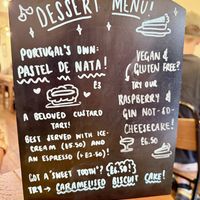 DESSERT MENU!
PORTUGAL'S OWN:
PASTEL DE NATA!
£3
A BELOVED CUSTARD
TART!
BEST SERVED WITH ICE-
CREAM (£5.50) AND
AN ESPRESSO (+£2.50)!
VEGAN &
GLUTEN FREE?
TRY OUR
RASPBERRY &
GIN NOT-SO-
CHEESECAKE!
£6.50
GOT A 'SWEET TOOTH'? (£6.50)!
TRY → CARAMELISED BISCUIT CAKE!